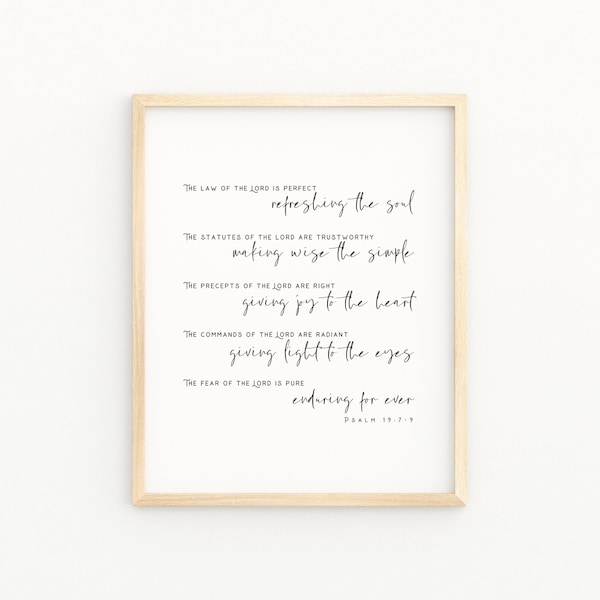 The law of the Lord is perfect
refreshing the soul
The statutes of the Lord are trustworthy
making wise the simple
The precepts of the Lord are right
giving joy to the heart
The commands of the Lord are radiant
giving light to the eyes
The fear of the Lord is pure
enduring for ever
Psalm 19:7-9